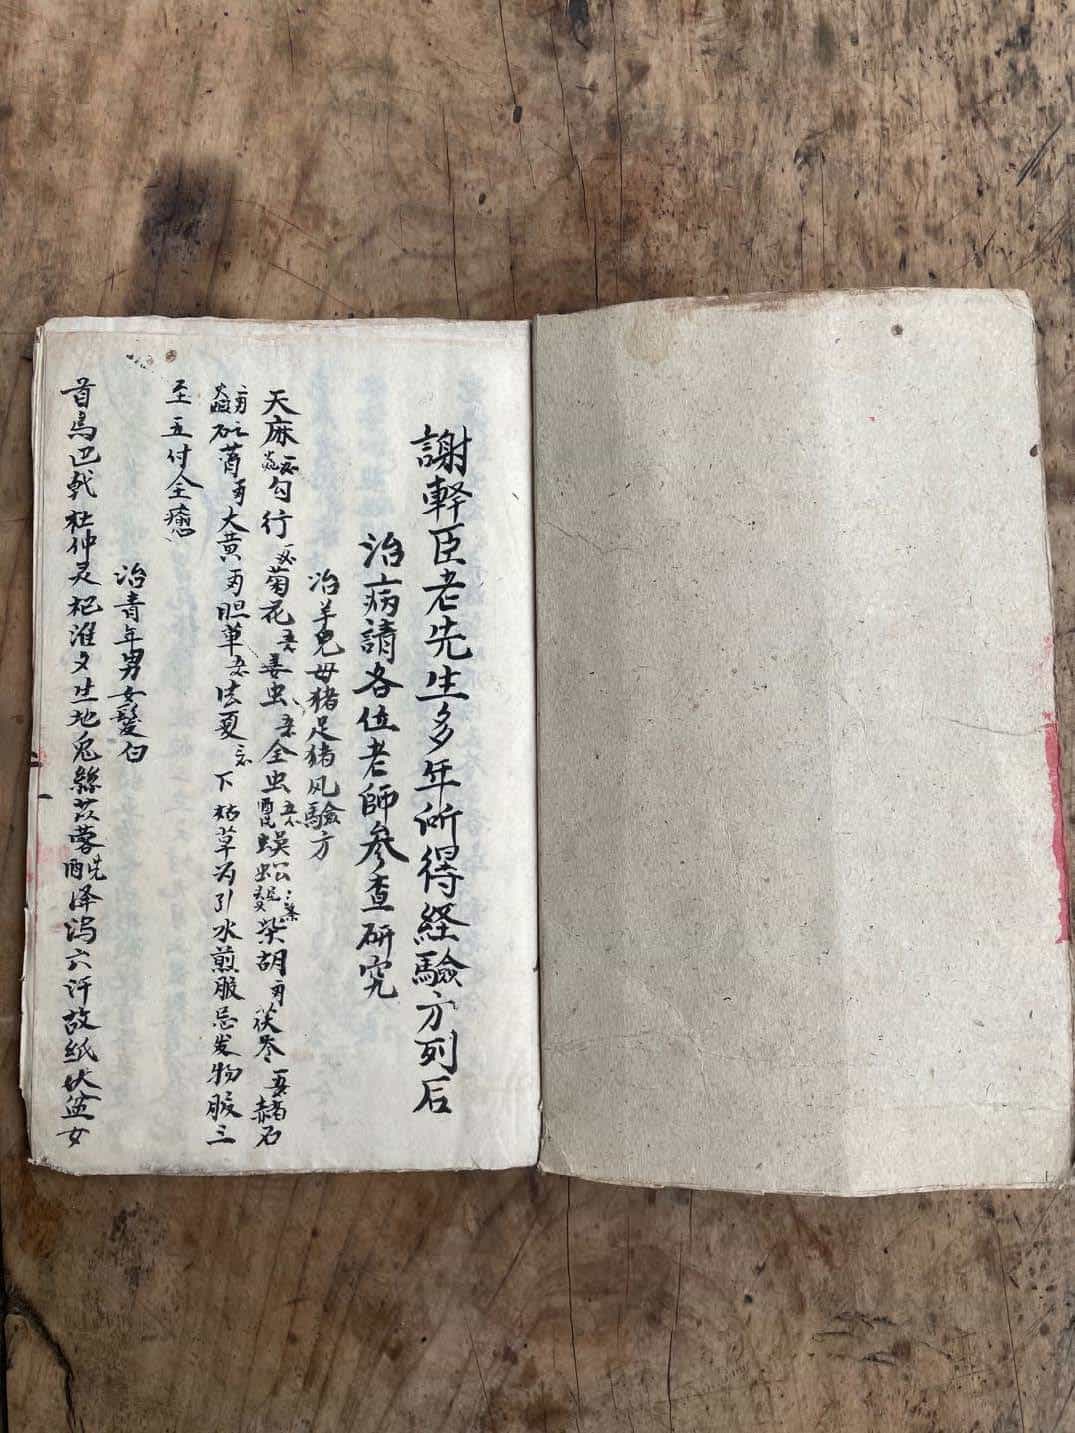 謝軽臣老先生多年所得経驗方列后
治病請各位老師參查研究
治羊児母猪足猪风驗方
天麻 勾行 菊花 姜虫 全虫 蜈蚣 柴胡 茯苓 赭石
大黄 胆草 法夏 下 枯草为引水煎服忌发物服三
至五付全癒
治青年男女髮白
首烏巴戟杜仲灵杞淮夕生地兎絲苁蓉 泽泻六汗故紙伏盆女